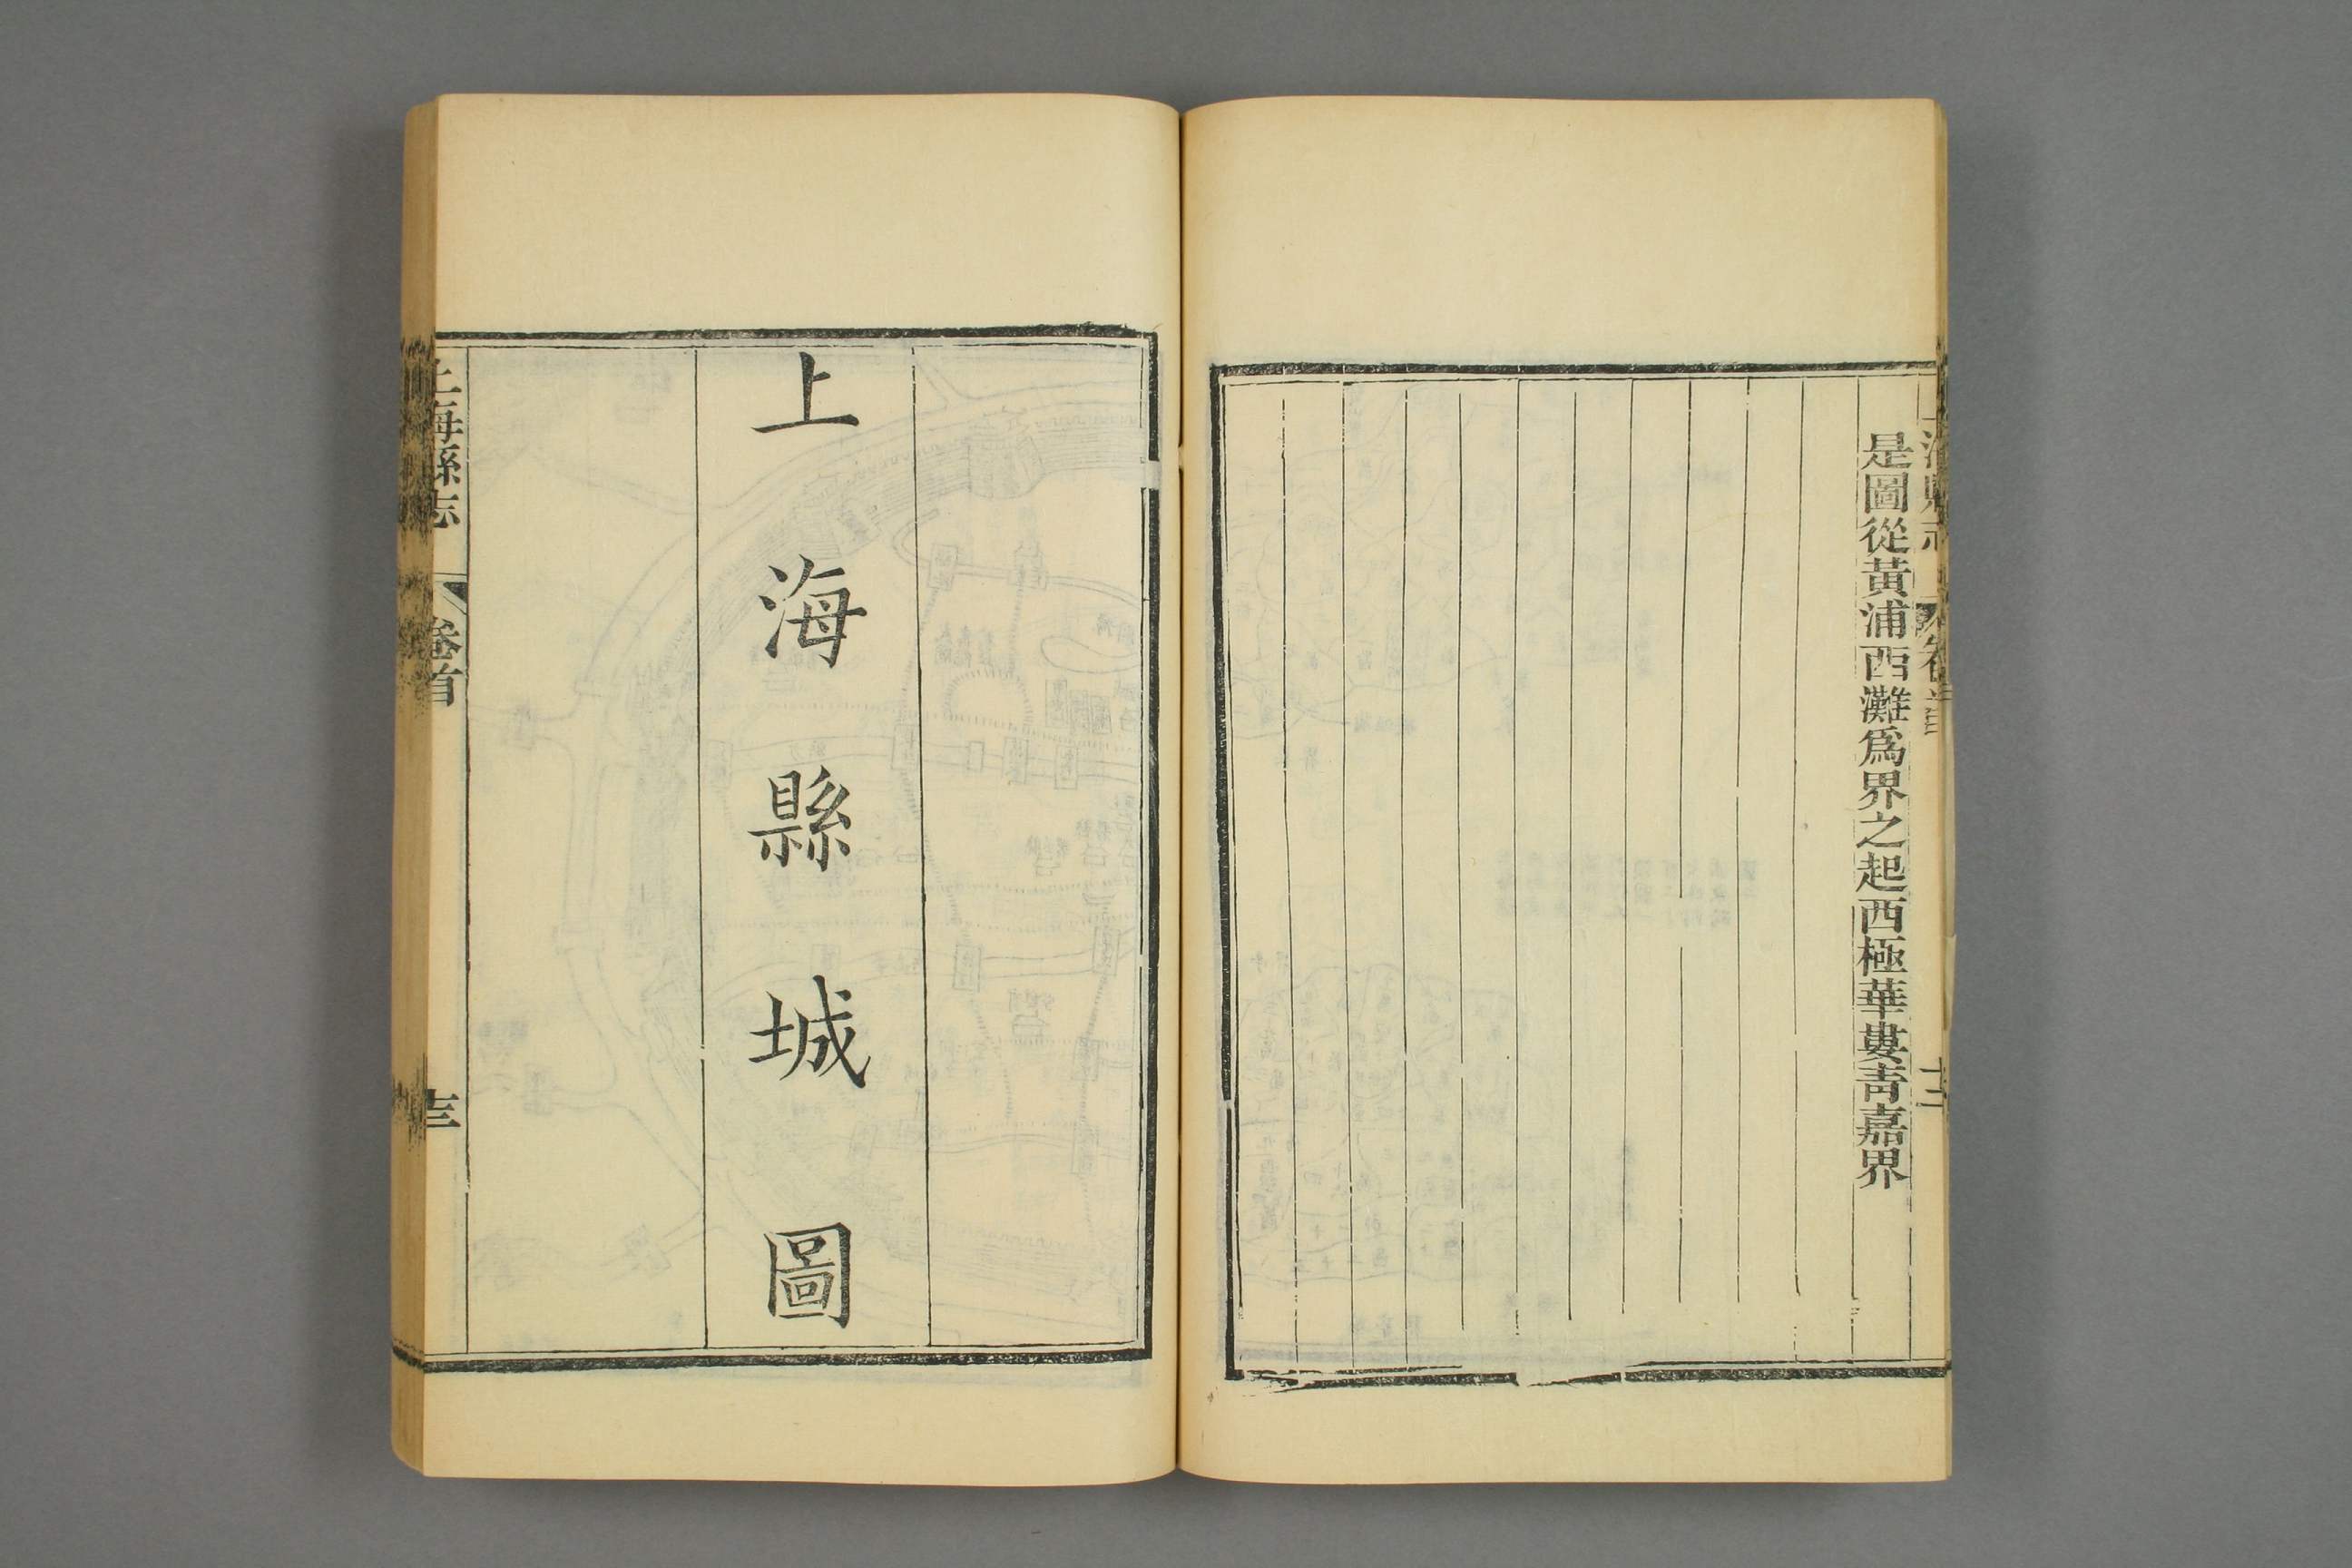 上海縣志
卷首
十二
是圖從黃浦西灘爲界之起西極華婁靑嘉界
上海縣城圖
上海縣志
卷首
十三